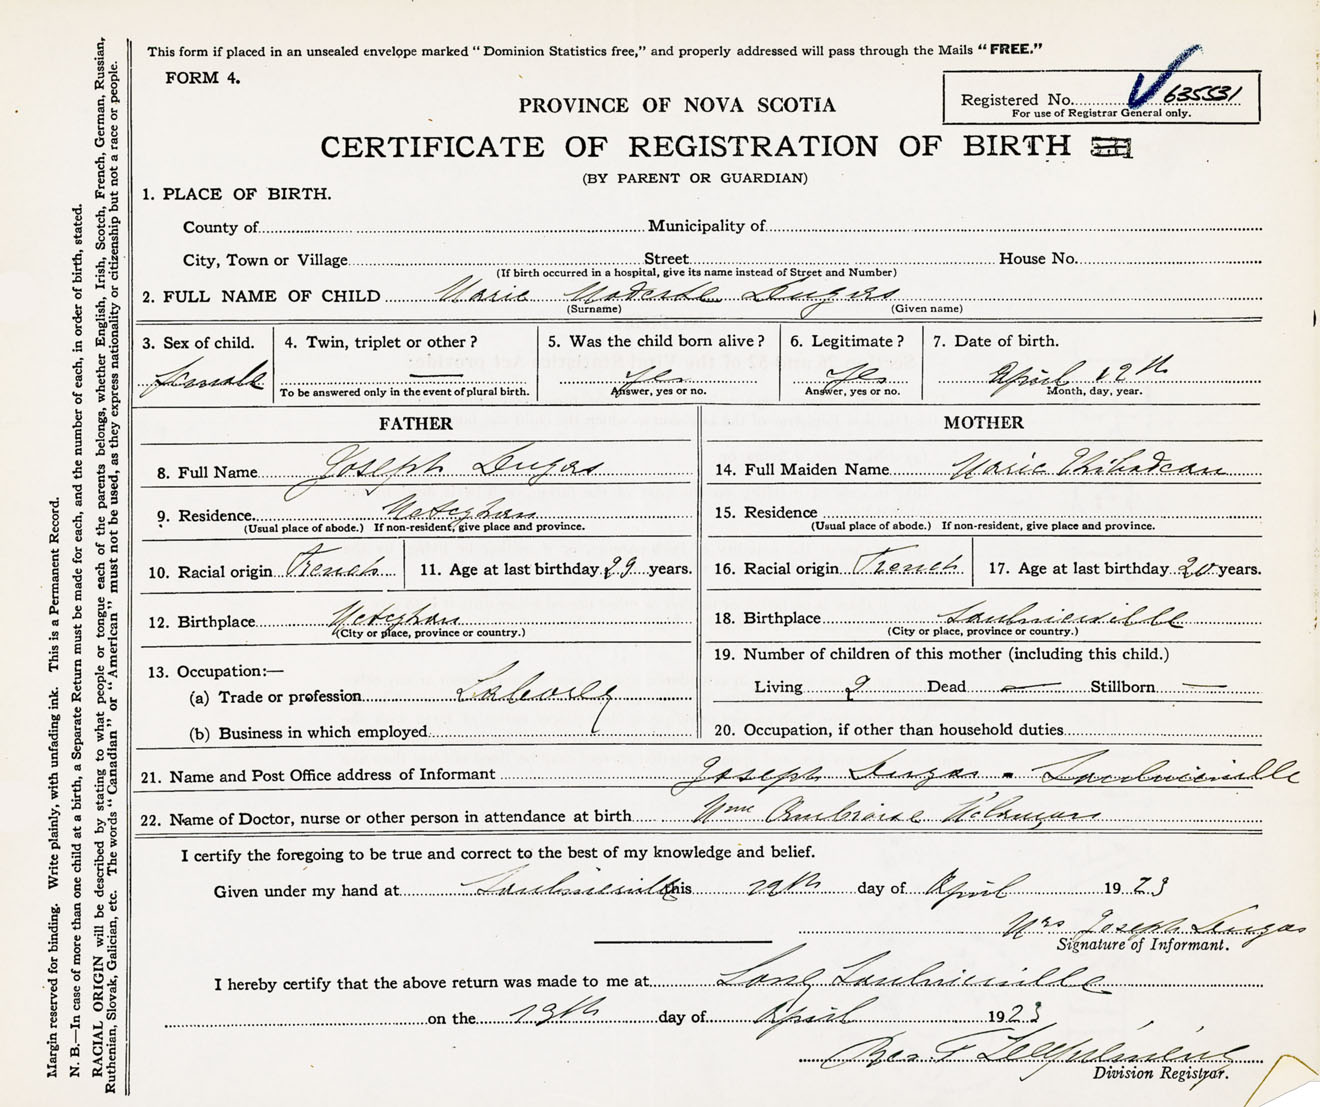 This form if placed in an unsealed envelope marked "Dominion Statistics free," and properly addressed will pass through the Mails "FREE."
FORM 4.
PROVINCE OF NOVA SCOTIA
Registered No. 635531
For use of Registrar General only.
CERTIFICATE OF REGISTRATION OF BIRTH
(BY PARENT OR GUARDIAN)
1. PLACE OF BIRTH.
County of Municipality of
City, Town or Village Street House No.
(If birth occurred in a hospital, give its name instead of Street and Number)
2. FULL NAME OF CHILD Marie Modeste Dugas
(Surname) (Given name)
3. Sex of child. 4. Twin, triplet or other? 5. Was the child born alive? 6. Legitimate? 7. Date of birth.
female — Yes Yes April 12th
To be answered only in the event of plural birth. Answer, yes or no. Answer, yes or no. Month, day, year.
FATHER MOTHER
8. Full Name Joseph Dugas 14. Full Maiden Name Marie Thibodeau
9. Residence Meteghan 15. Residence
(Usual place of abode.) If non-resident, give place and province. (Usual place of abode.) If non-resident, give place and province.
10. Racial origin French 11. Age at last birthday 29 years. 16. Racial origin French 17. Age at last birthday 20 years.
12. Birthplace Meteghan 18. Birthplace Saulnierville
(City or place, province or country.) (City or place, province or country.)
19. Number of children of this mother (including this child.)
13. Occupation:—
(a) Trade or profession Laborer Living 2 Dead — Stillborn —
(b) Business in which employed 20. Occupation, if other than household duties
21. Name and Post Office address of Informant Joseph Dugas - Saulnierville
22. Name of Doctor, nurse or other person in attendance at birth Mme Ambroise
I certify the foregoing to be true and correct to the best of my knowledge and belief.
Given under my hand at Saulnierville this day of April 1923
Mrs Joseph Dugas
Signature of Informant.
I hereby certify that the above return was made to me at Long Saulnierville
on the 19th day of April 1923
Division Registrar.
Margin reserved for binding. Write plainly, with unfading ink. This is a Permanent Record.
N. B.—In case of more than one child at a birth, a Separate Return must be made for each, and the number of each, in order of birth, stated.
RACIAL ORIGIN will be described by stating to what people or tongue each of the parents belongs, whether English, Irish, Scotch, French, German, Russian,
Ruthenian, Slovak, Galician, etc. The words "Canadian" or "American" must not be used, as they express nationality or citizenship but not a race or people.